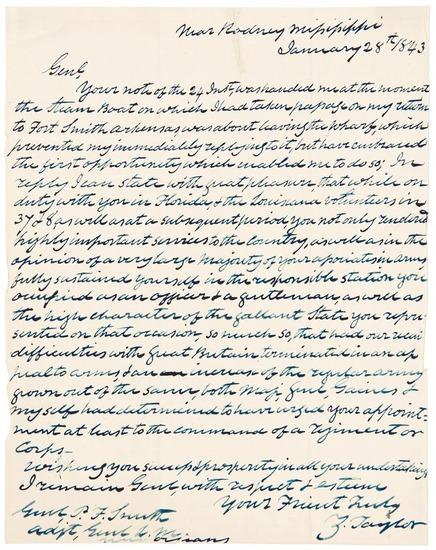 Near Rodney Mississippi
January 28th 1843
Genl,
Your note of the 24 Inst, was handed me at the moment
the Steam Boat on which I had taken passage on my return
to Fort Smith Arkensas, was about leaving the wharf, which
prevented my immediately replying to it, but have embraced
the first opportunity which enabled me to do so; In
reply I can state with great pleasure, that while on
duty with you in Florida, & the Louisiana Volunteers in
37 & 8 as well as at a subsequent period you not only rendered
highly important services to the Country, as well as in the
opinion of a very large Majority of your associates in arms,
fully sustained yourself in the responsible station you
occupied as an officer & a gentleman, as well as
the high character of the gallant State you repre-
sented on that occasion, so much so, that had our recent
difficulties with Great Britain terminated in an ap
peal to arms & an increase of the regular army
grown out of the same, both Maj, Genl, Gaines &
myself had determined to have urged your appoint-
ment at least to the command of a regiment or
Corps-
Wishing you success & prosperity in all your undertakings
I remain Genl, with respect & esteem
Your Friend Truly
Z. Taylor
Genl P. F. Smith
Adjt, Genl
Orleans